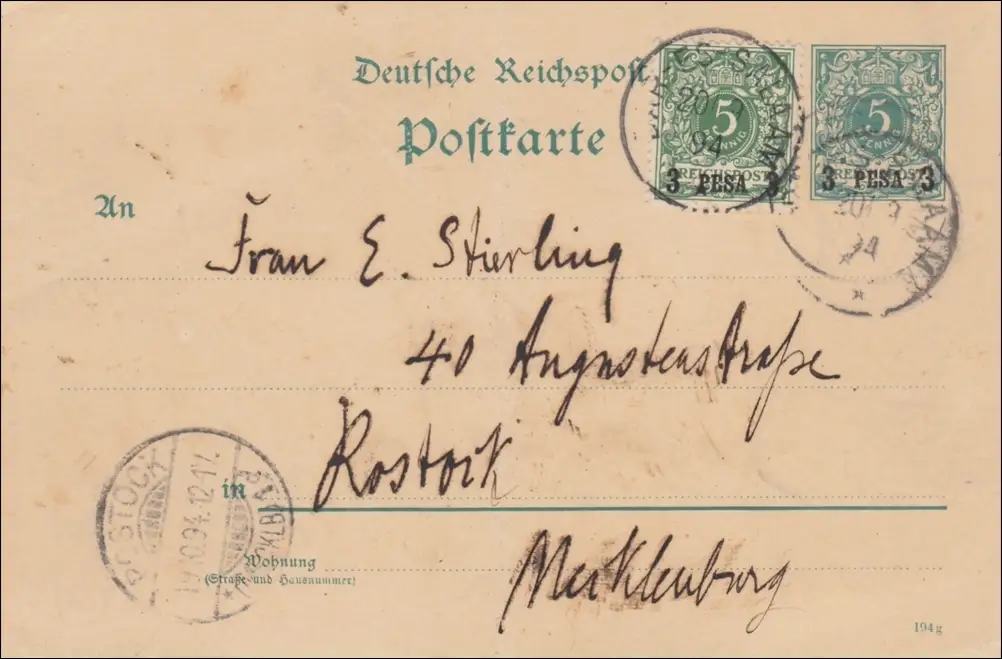 Deutsche Reichspost
Postkarte
DAR-ES-SALAAM
20
94
5
PFENNIG
REICHSPOST
3 PESA 3
5
PFENNIG
REICHSPOST
3 PESA 3
94
An
Frau E. Stierling
40 Augustenstraße
in Rostock
Mecklenburg
ROSTOCK
94. 12-1
Wohnung
(Straße und Hausnummer)
194g